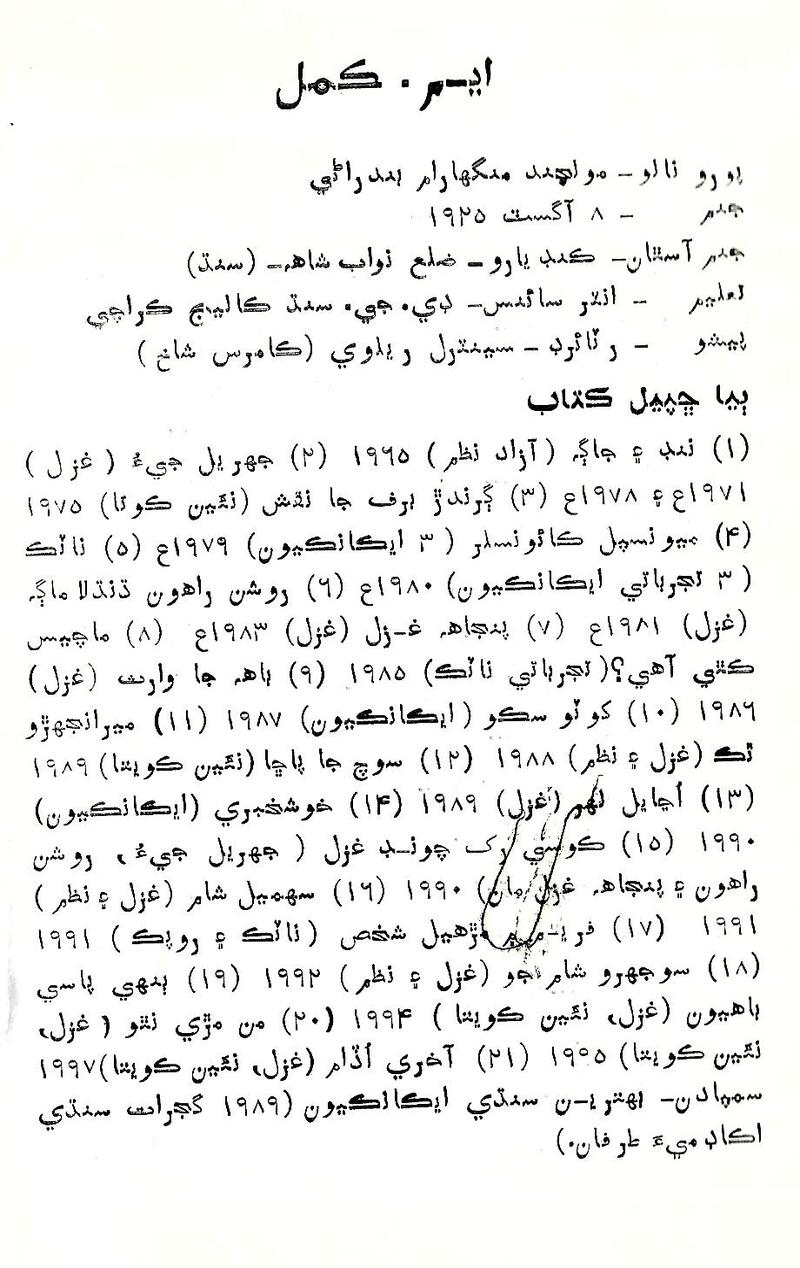 ايم. ڪمل
پورو نالو - مولچند منگهارام بندراڻي
جنم - ٨ آگسٽ ١٩٢٥
جنم آستان- ڪنڊيارو - ضلع نواب شاهه- (سنڌ)
تعليم - انٽر سائنس- ڊي. جي. سنڌ ڪاليج ڪراچي
پيشو - رٽائرڊ - سينٽرل ريلوي (ڪامرس شاخ)
ٻيا ڇپيل ڪتاب
(١) ننڊ ۽ جاڳ (آزاد نظم) ١٩٦٥ (٢) جهريل جيءُ (غزل)
١٩٧١ع ۽ ١٩٧٨ع (٣) ڳرندڙ برف جا نقش (نئين ڪوتا) ١٩٧٥
(۴) ميونسپل ڪائونسلر (٣ ايڪانڪيون) ١٩٧٩ع (٥) ناٽڪ
(٣ تجرباتي ايڪانڪيون) ١٩٨٠ع (٦) روشن راهون ڌنڌلا ماڳ
(غزل) ١٩٨١ع (٧) پنجاهه غزل (غزل) ١٩٨٣ع (٨) ماچيس
ڪٿي آهي؟ (تجرباتي ناٽڪ) ١٩٨٥ (٩) باهه جا وارث (غزل)
١٩٨٦ (١٠) کوٽو سڪو (ايڪانڪيون) ١٩٨٧ (١١) ميرانجهڙو
تڪ (غزل ۽ نظم) ١٩٨٨ (١٢) سوچ جا پاڇا (نئين ڪويتا) ١٩٨٩
(١٣) اُڃايل لهر (غزل) ١٩٨٩ (١۴) خوشخبري (ايڪانڪيون)
١٩٩٠ (١٥) ڪوسي رک چونڊ غزل (جهريل جيءُ، روشن
راهون ۽ پنجاهه غزل مان) ١٩٩٠ (١٦) سهميل شام (غزل ۽ نظم)
١٩٩١ (١٧) فريم ۾ مڙهيل شخص (ناٽڪ ۽ روپڪ) ١٩٩١
(١٨) سوجهرو شام جو (غزل ۽ نظم) ١٩٩٢ (١٩) ٻنهي پاسي
باهيون (غزل، نئين ڪويتا) ١٩٩۴ (٢٠) من مڙي نٿو (غزل،
نئين ڪويتا) ١٩٩٥ (٢١) آخري اُڏام (غزل، نئين ڪويتا) ١٩٩٧
سمپادن- بهترين سنڌي ايڪانڪيون (١٩٨٩ گجرات سنڌي
اڪاڊميءَ طرفان.)